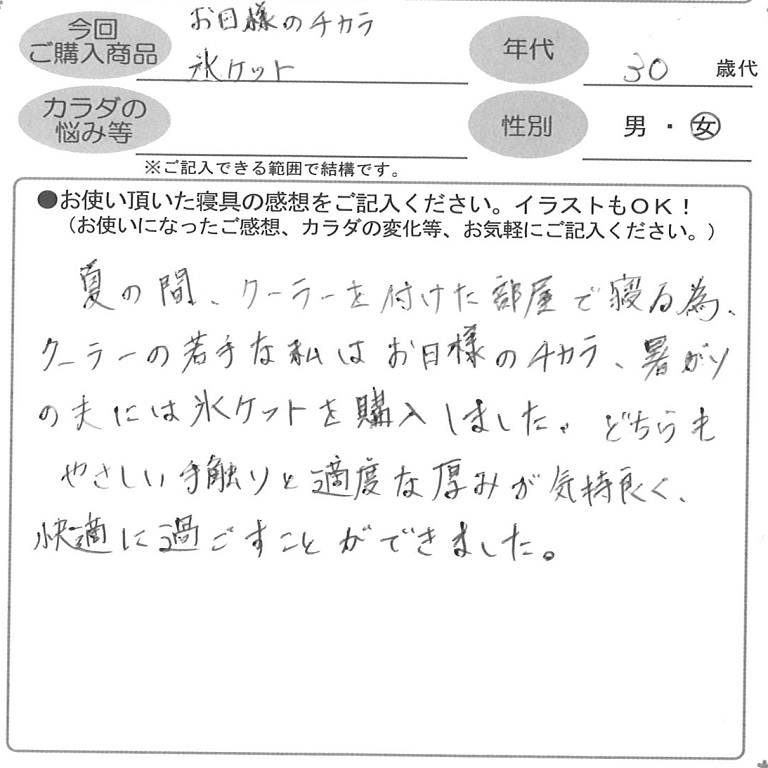 今回
ご購入商品
お日様のチカラ
氷ケット
年代
30 歳代
カラダの
悩み等
性別
男・女
※ご記入できる範囲で結構です。
●お使い頂いた寝具の感想をご記入ください。イラストもOK！
（お使いになったご感想、カラダの変化等、お気軽にご記入ください。）
夏の間、クーラーを付けた部屋で寝る為、
クーラーの若手な私はお日様のチカラ、暑がり
の夫には氷ケットを購入しました。どちらも
やさしい手触りと適度な厚みが気持良く、
快適に過ごすことができました。